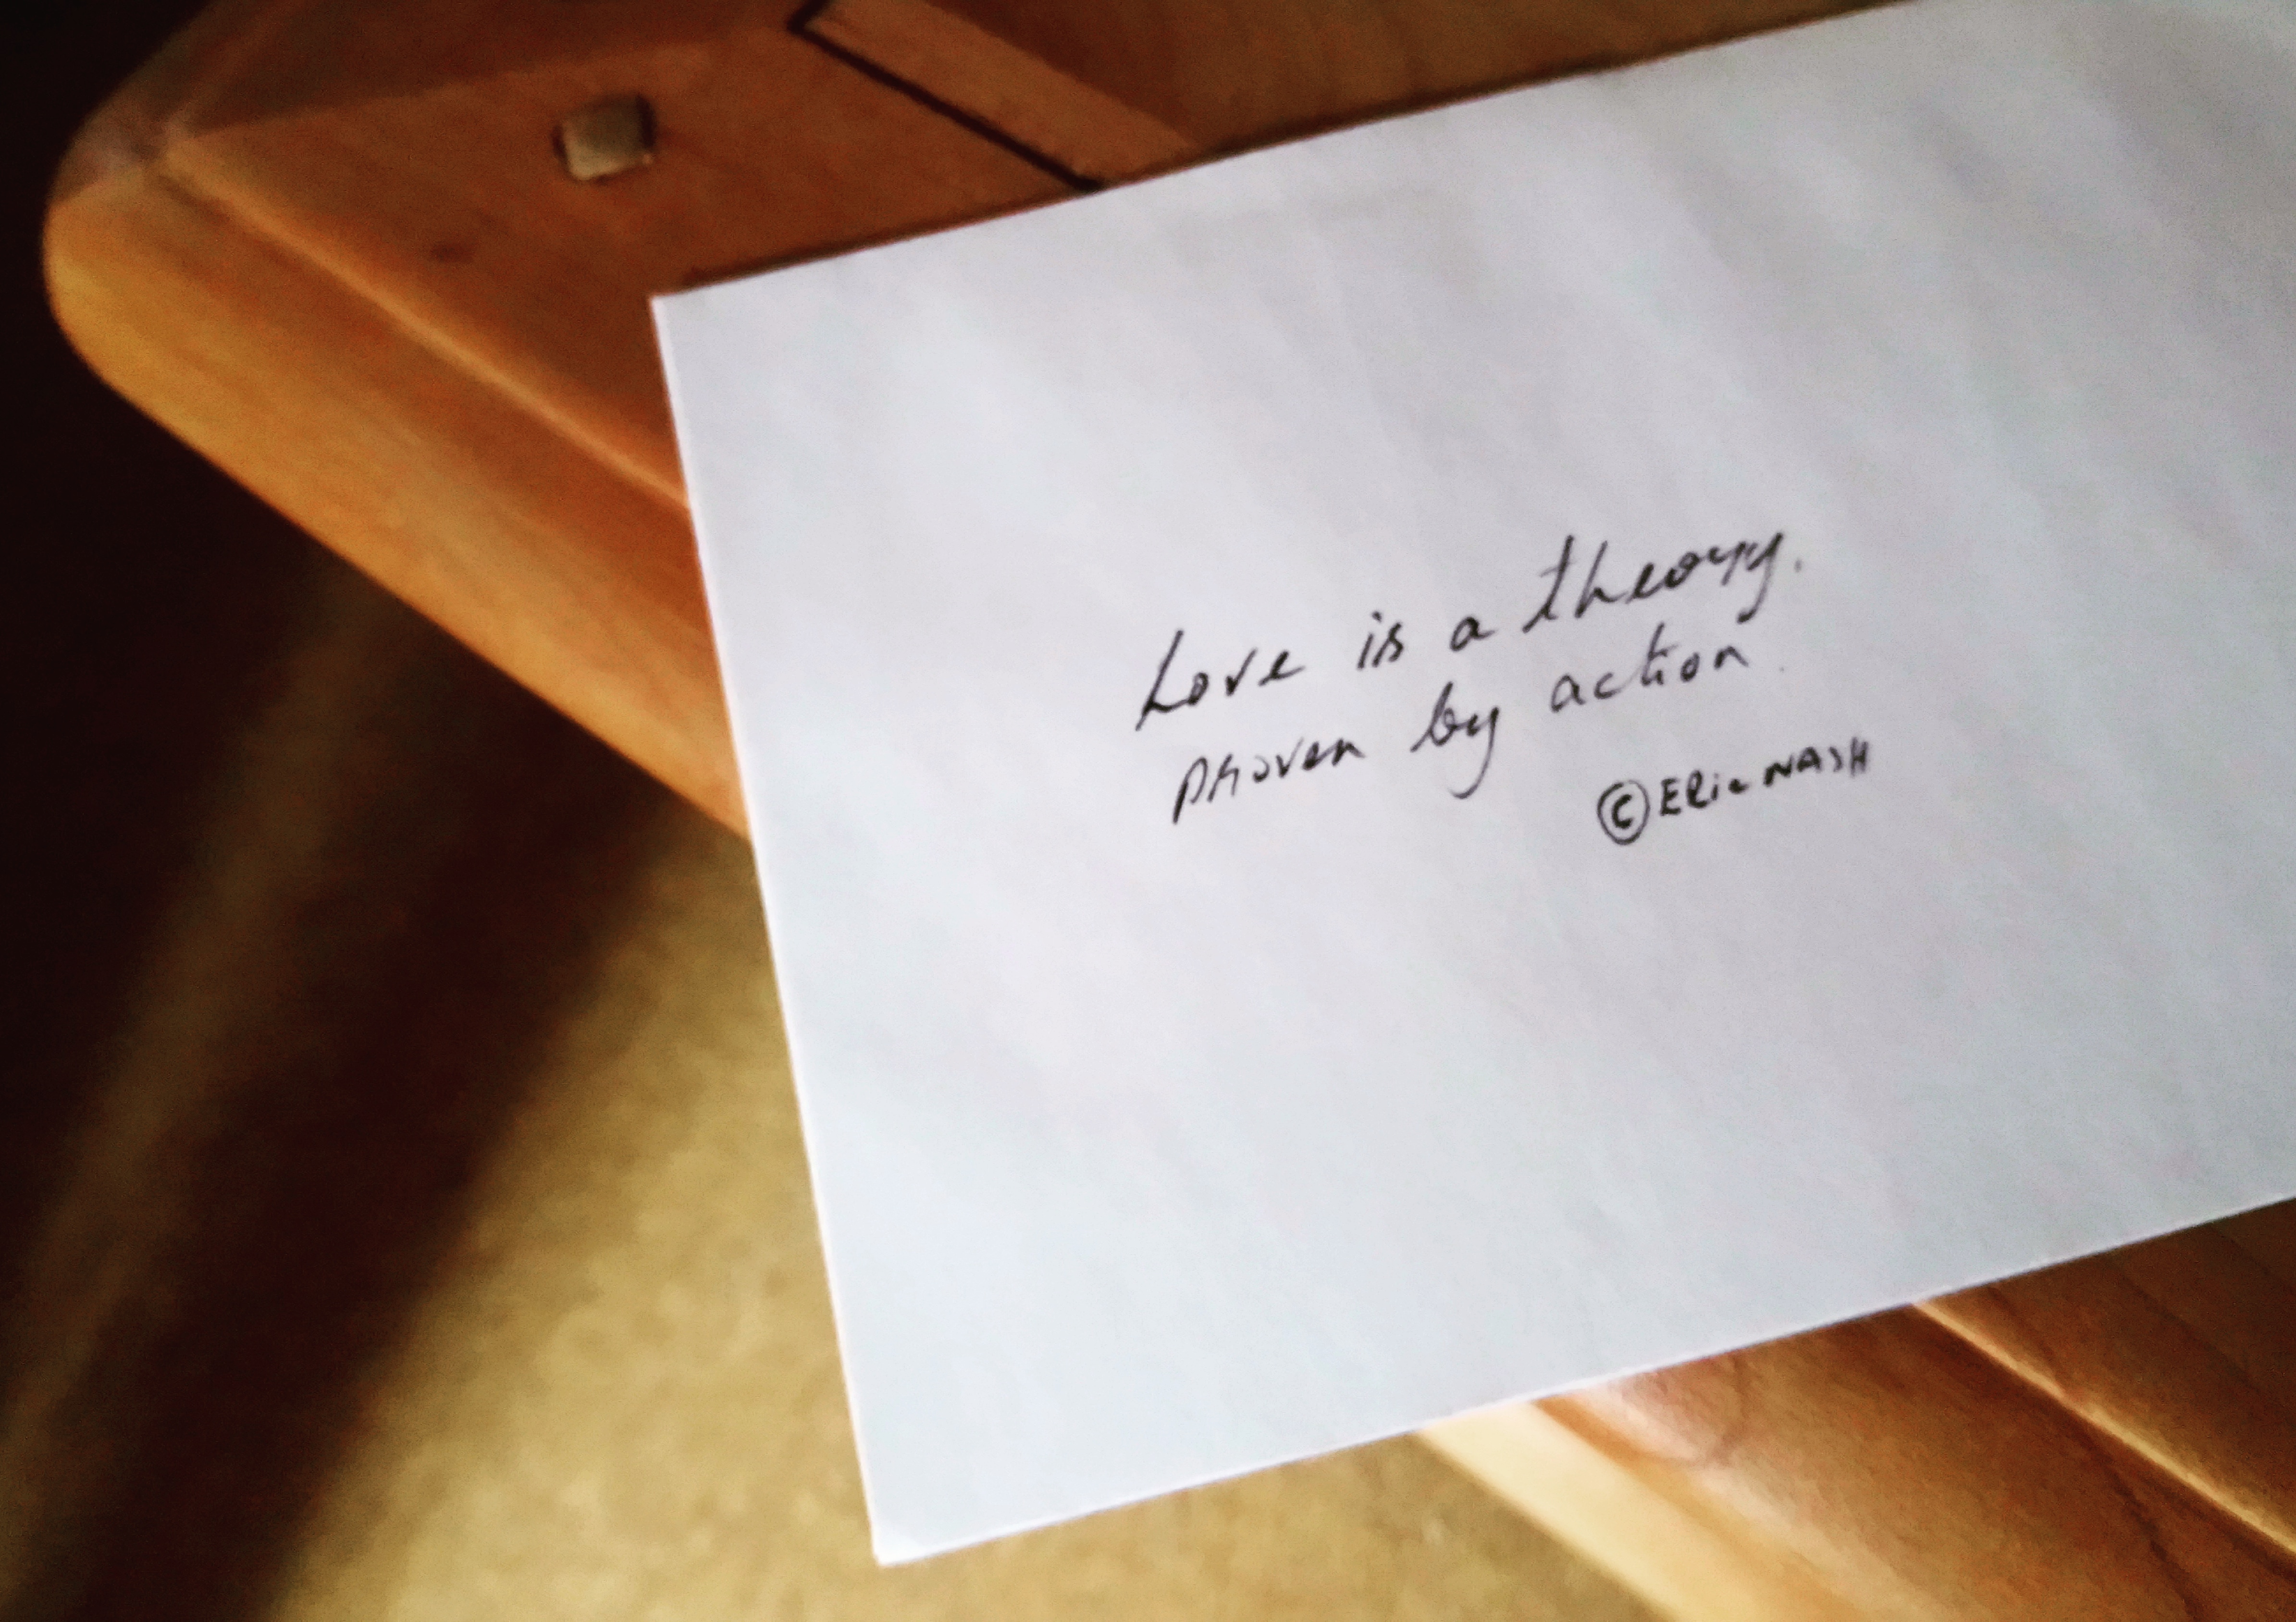 Love is a theory.
proven by action.
© Eric NASH